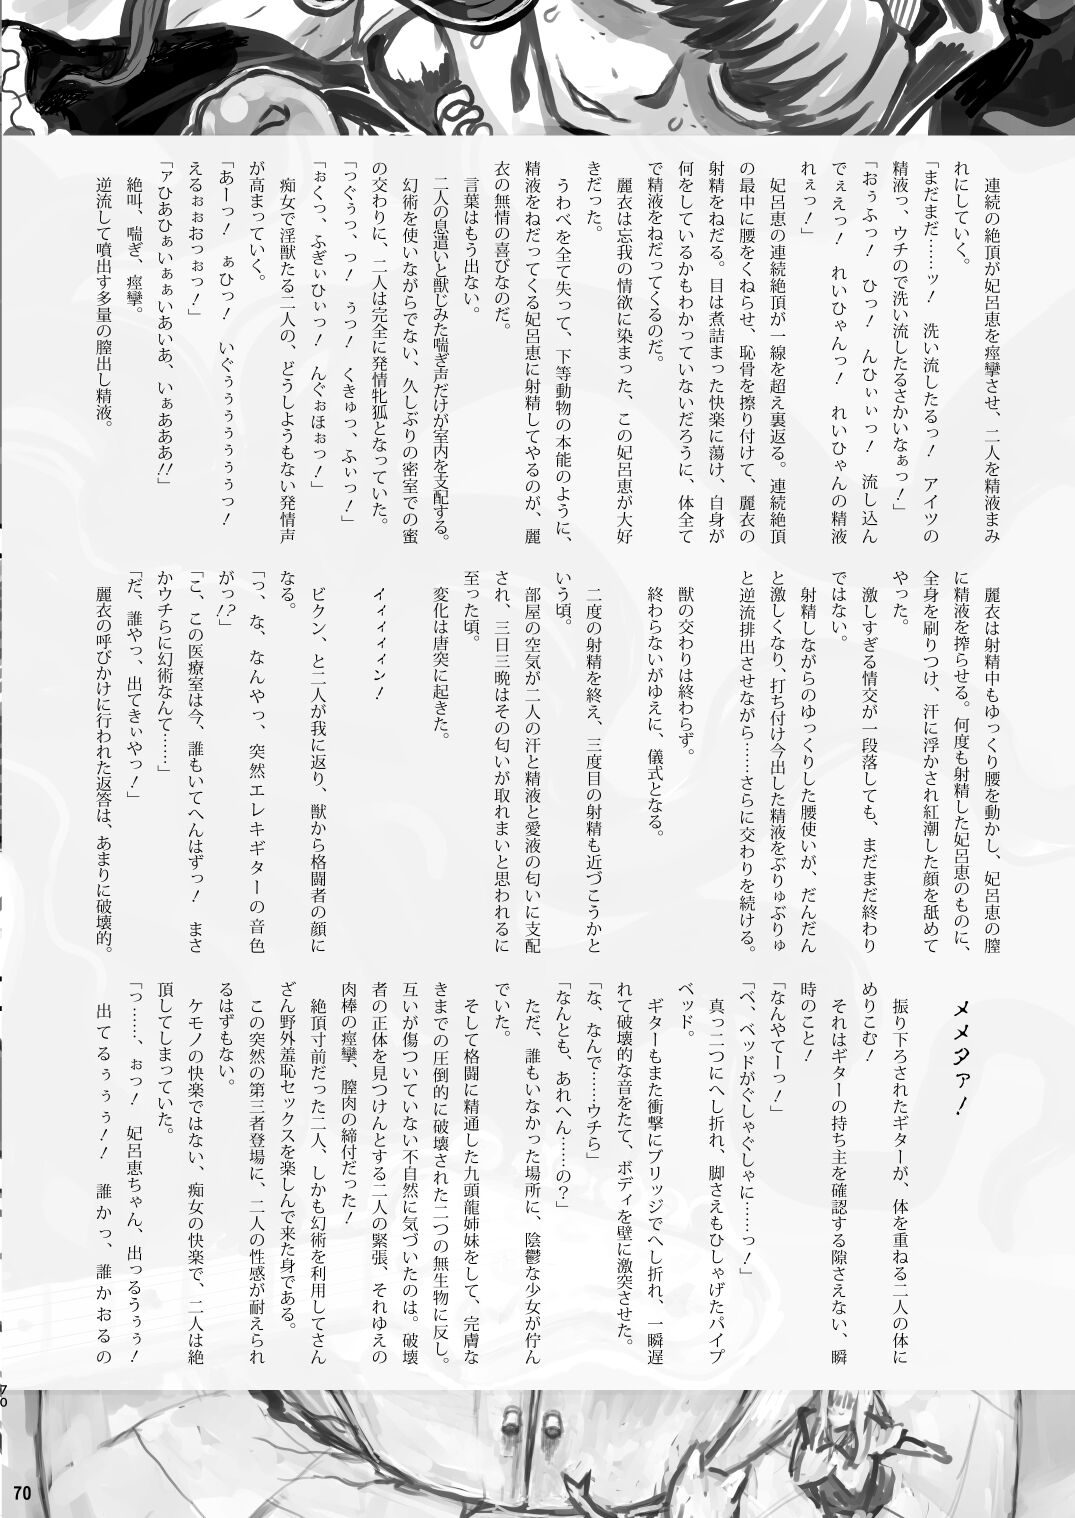 連続の絶頂が妃呂恵を痙攣させ、二人を精液まみ
れにしていく。
「まだまだ……ッ！　洗い流したるっ！　アイツの
精液っ、ウチので洗い流したるさかいなぁっ！」
「おぅふっ！　ひっ！　んひぃぃっ！　流し込ん
でぇえっ！　れいひゃんっ！　れいひゃんの精液
れぇっ！」
妃呂恵の連続絶頂が一線を超え裏返る。連続絶頂
の最中に腰をくねらせ、恥骨を擦り付けて、麗衣の
射精をねだる。目は煮詰まった快楽に蕩け、自身が
何をしているかもわかっていないだろうに、体全て
で精液をねだってくるのだ。
麗衣は忘我の情欲に染まった、この妃呂恵が大好
きだった。
うわべを全て失って、下等動物の本能のように、
精液をねだってくる妃呂恵に射精してやるのが、麗
衣の無情の喜びなのだ。
言葉はもう出ない。
二人の息遣いと獣じみた喘ぎ声だけが室内を支配する。
幻術を使いながらでない、久しぶりの密室での蜜
の交わりに、二人は完全に発情牝狐となっていた。
「つぐぅっ、っ！　ぅっ！　くきゅっ、ふぃっ！」
「ぉくっ、ふぎぃひぃっ！　んぐぉほぉっ！」
痴女で淫獣たる二人の、どうしようもない発情声
が高まっていく。
「あーっ！　ぁひっ！　いぐぅぅぅぅぅぅぅっ！
えるぉぉおっぉっ！」
「ァひあひぁいぁぁいあいあ、いぁあああ!!」
絶叫、喘ぎ、痙攣。
逆流して噴出す多量の膣出し精液。
麗衣は射精中もゆっくり腰を動かし、妃呂恵の膣
に精液を搾らせる。何度も射精した妃呂恵のものに、
全身を刷りつけ、汗に浮かされ紅潮した顔を舐めて
やった。
激しすぎる情交が一段落しても、まだまだ終わり
ではない。
射精しながらのゆっくりした腰使いが、だんだん
と激しくなり、打ち付け今出した精液をぶりゅぶりゅ
と逆流排出させながら……さらに交わりを続ける。
獣の交わりは終わらず。
終わらないがゆえに、儀式となる。
二度の射精を終え、三度目の射精も近づこうかと
いう頃。
部屋の空気が二人の汗と精液と愛液の匂いに支配
され、三日三晩はその匂いが取れまいと思われるに
至った頃。
変化は唐突に起きた。
イィィィィン！
ビクン、と二人が我に返り、獣から格闘者の顔に
なる。
「っ、な、なんやっ、突然エレキギターの音色
がっ!?」
「こ、この医療室は今、誰もいてへんはずっ！　まさ
かウチらに幻術なんて……」
「だ、誰やっ、出てきぃやっ！」
麗衣の呼びかけに行われた返答は、あまりに破壊的。
メメタァ！
振り下ろされたギターが、体を重ねる二人の体に
めりこむ！
それはギターの持ち主を確認する隙さえない、瞬
時のこと！
「なんやてーっ！」
「ベ、ベッドがぐしゃぐしゃに……っ！」
真っ二つにへし折れ、脚さえもひしゃげたパイプ
ベッド。
ギターもまた衝撃にブリッジでへし折れ、一瞬遅
れて破壊的な音をたて、ボディを壁に激突させた。
「な、なんで……ウチら」
「なんとも、あれへん……の？」
ただ、誰もいなかった場所に、陰鬱な少女が佇ん
でいた。
そして格闘に精通した九頭龍姉妹をして、完膚な
きまでの圧倒的に破壊された二つの無生物に反し。
互いが傷ついていない不自然に気づいたのは。破壊
者の正体を見つけんとする二人の緊張、それゆえの
肉棒の痙攣、膣肉の締付だった！
絶頂寸前だった二人、しかも幻術を利用してさん
ざん野外羞恥セックスを楽しんで来た身である。
この突然の第三者登場に、二人の性感が耐えられ
るはずもない。
ケモノの快楽ではない、痴女の快楽で、二人は絶
頂してしまっていた。
「っ……、ぉっ！　妃呂恵ちゃん、出っるうぅぅ！
出てるぅぅぅ！！　誰かっ、誰かおるの
70
70